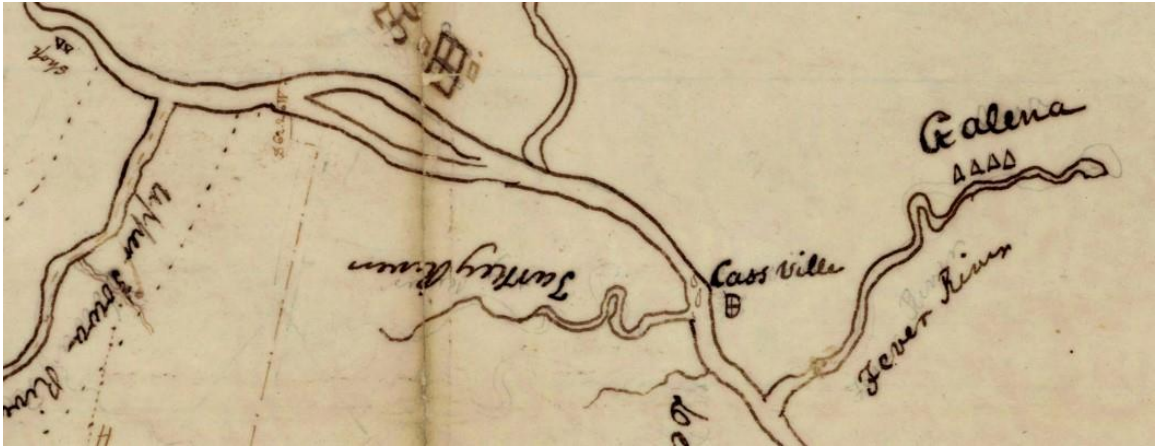 Galena
Cass Ville
Turkey River
Fever River
Upper Iowa Rive